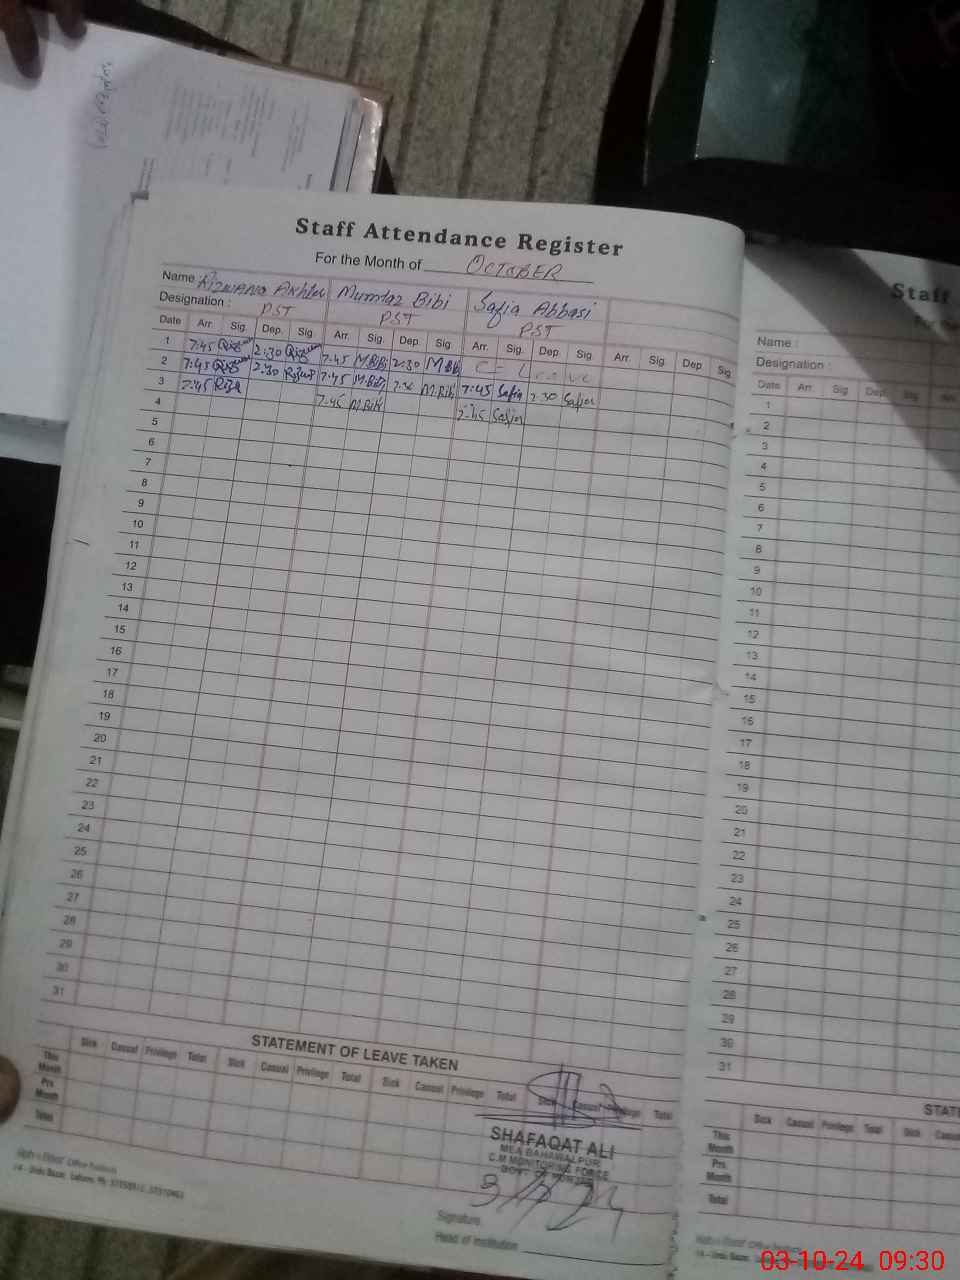 Staff Attendance Register
For the Month of OCTOBER
Name : Rizwana Akhtar Mumtaz Bibi Safia Abbasi
Designation : PST PST PST
Date Arr. Sig. Dep. Sig. Arr. Sig. Dep. Sig. Arr. Sig. Dep. Sig. Arr. Sig. Dep. Sig.
1 7:45 2:30 7:45 M.Bibi 2:30 M.Bibi C = Leave
2 7:45 2:30 7:45 M.Bibi 2:30 M.Bibi 7:45 Safia 2:30 Safia
3 7:45 7:45 M.Bibi 7:45 Safia
4
5
6
7
8
9
10
11
12
13
14
15
16
17
18
19
20
21
22
23
24
25
26
27
28
29
30
31
STATEMENT OF LEAVE TAKEN
Sick Casual Privilege Total Sick Casual Privilege Total Sick Casual Privilege Total Sick Casual Privilege Total
This Month
Prs. Month
Total
SHAFAQAT ALI
MEA BAHAWALPUR
C.M MONITORING FORCE
GOVT OF PUNJAB
3/10/24
Signature
Head of Institution
Staff
Name :
Designation :
Date Arr. Sig. Dep. Sig. Arr.
1
2
3
4
5
6
7
8
9
10
11
12
13
14
15
16
17
18
19
20
21
22
23
24
25
26
27
28
29
30
31
STATE
Sick Casual Privilege Total Sick
This Month
Prs. Month
Total
03-10-24 09:30